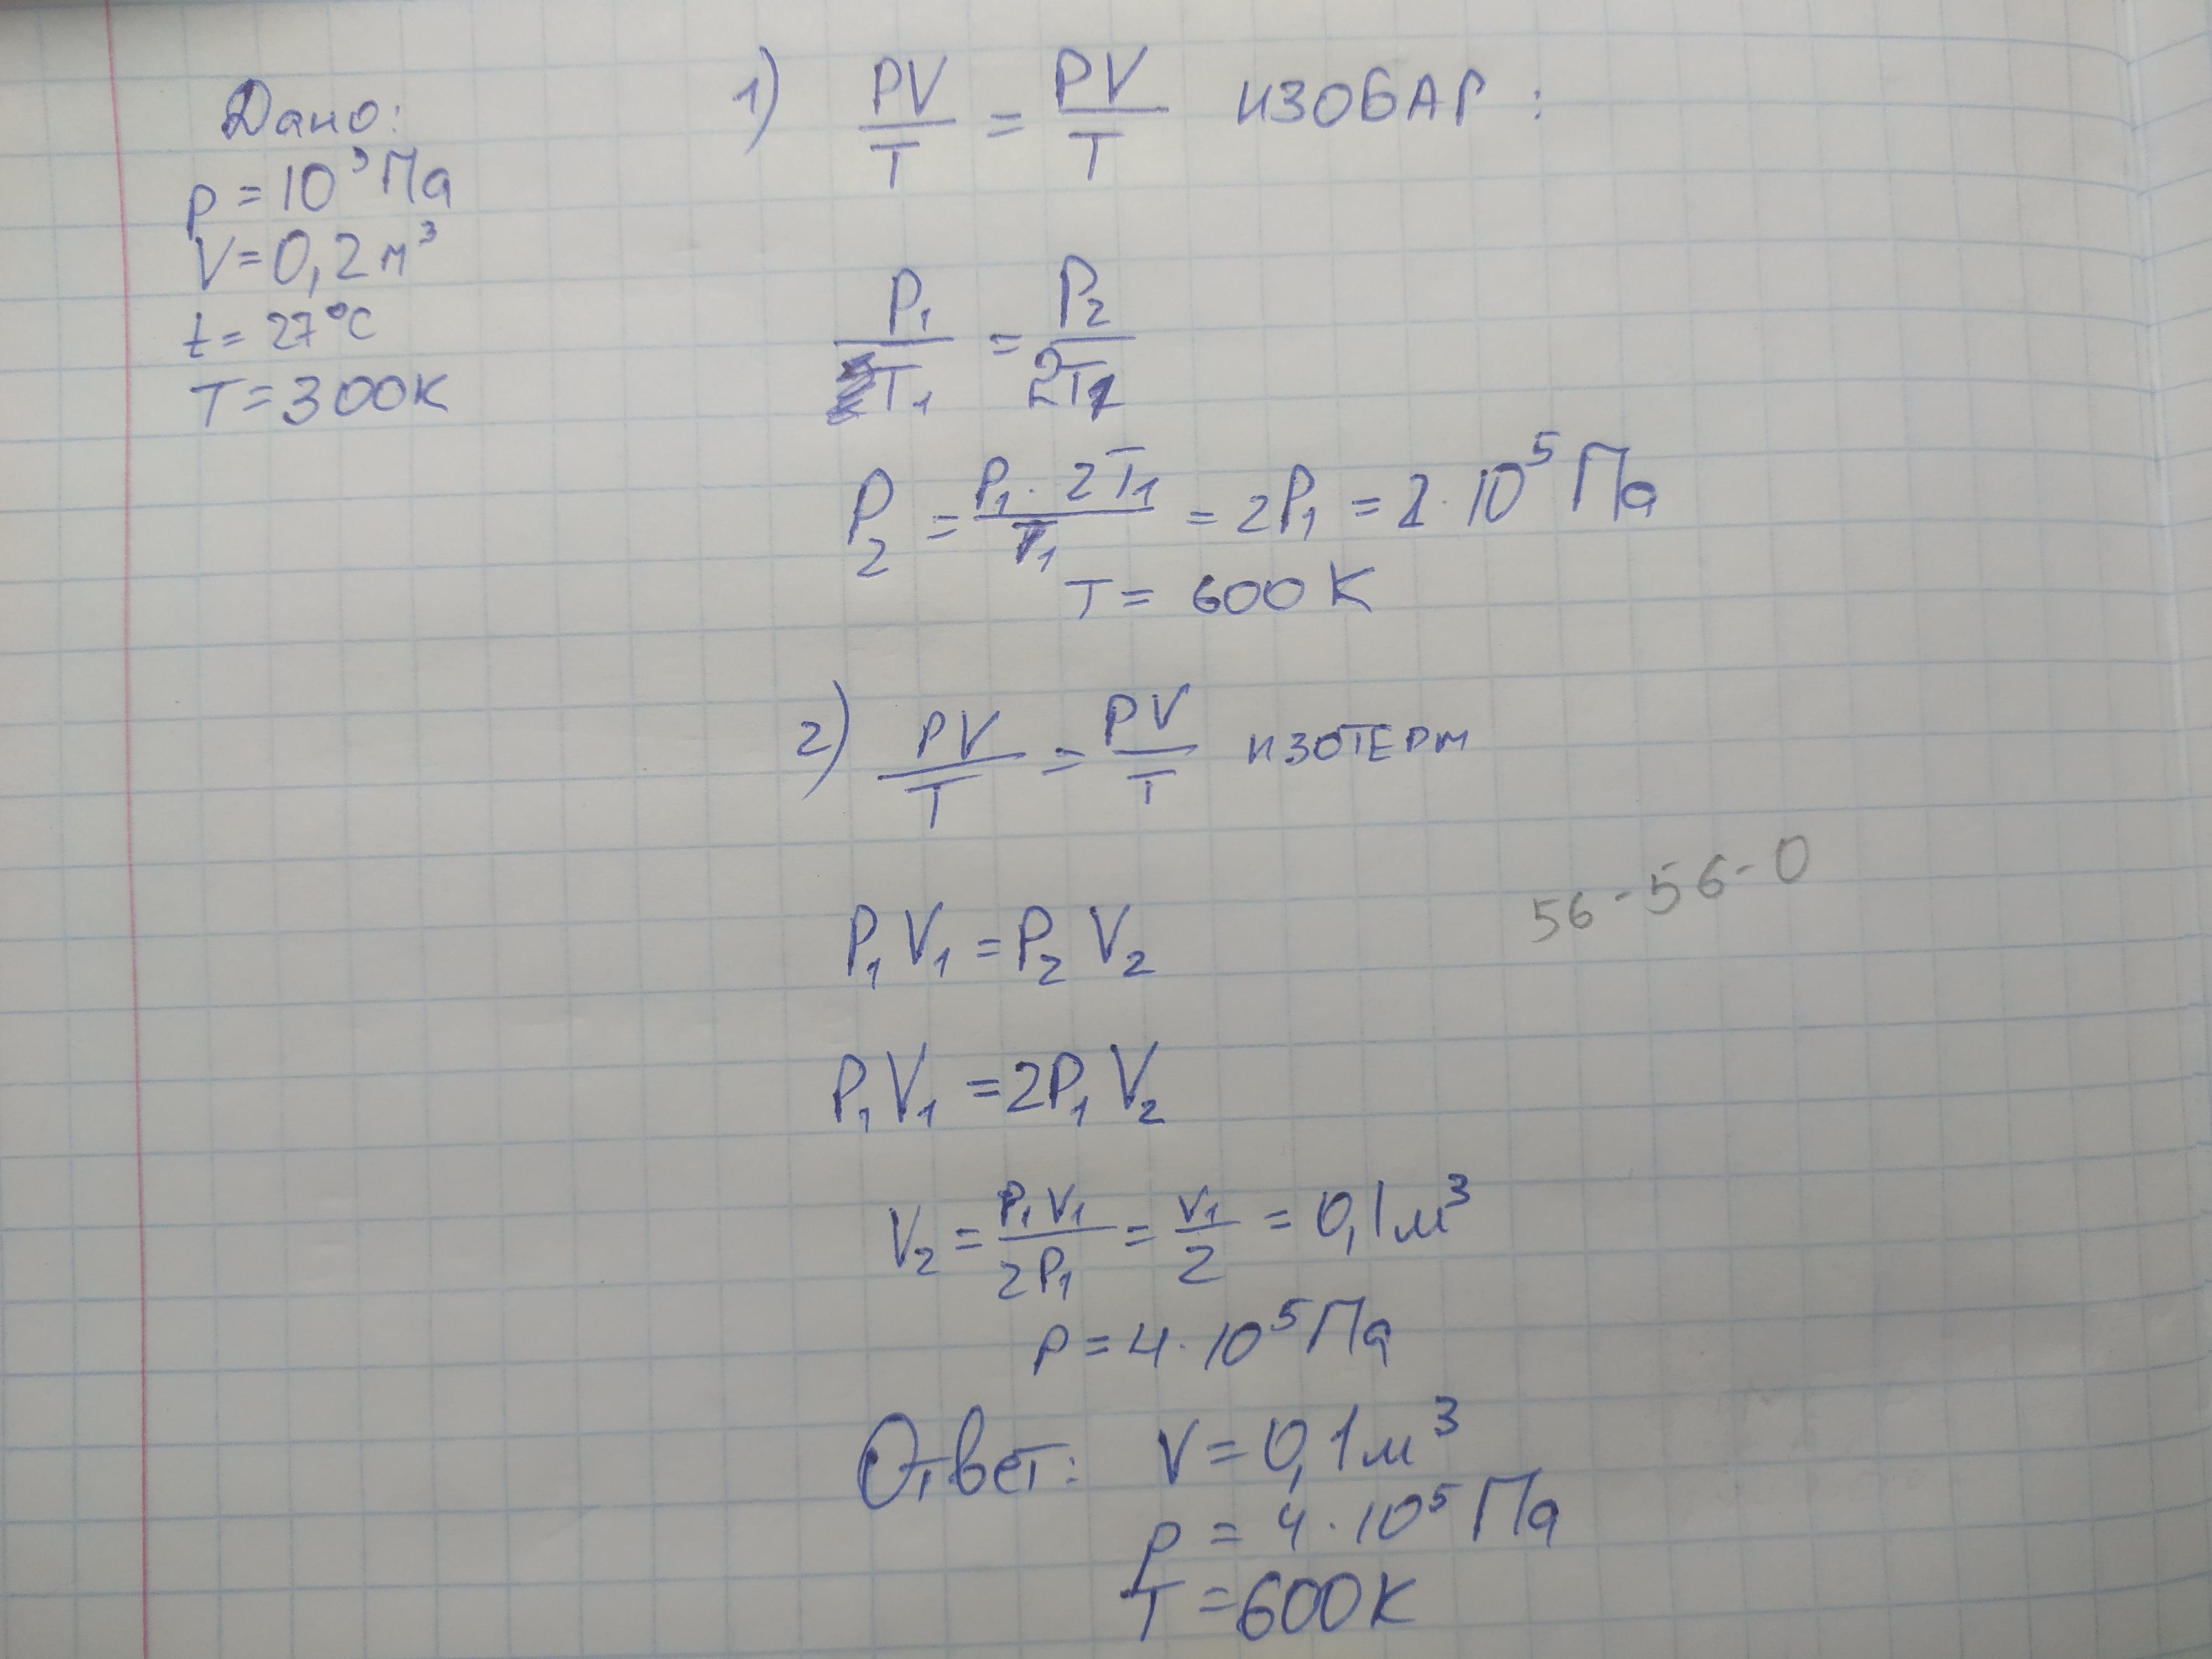 Дано:
p = 10³ Па
V = 0,2 м³
t = 27°C
T = 300K
1) PV/T = PV/T ИЗОБАР :
P₁/T₁ = P₂/2T₁
P₂ = P₁ · 2T₁/T₁ = 2P₁ = 2 · 10⁵ Па
T = 600 K
2) PV/T = PV/T ИЗОТЕРМ
56-56-0
P₁V₁ = P₂V₂
P₁V₁ = 2P₁V₂
V₂ = P₁V₁/2P₁ = V₁/2 = 0,1 м³
p = 4 · 10⁵ Па
Ответ: V = 0,1 м³
p = 4 · 10⁵ Па
T = 600K